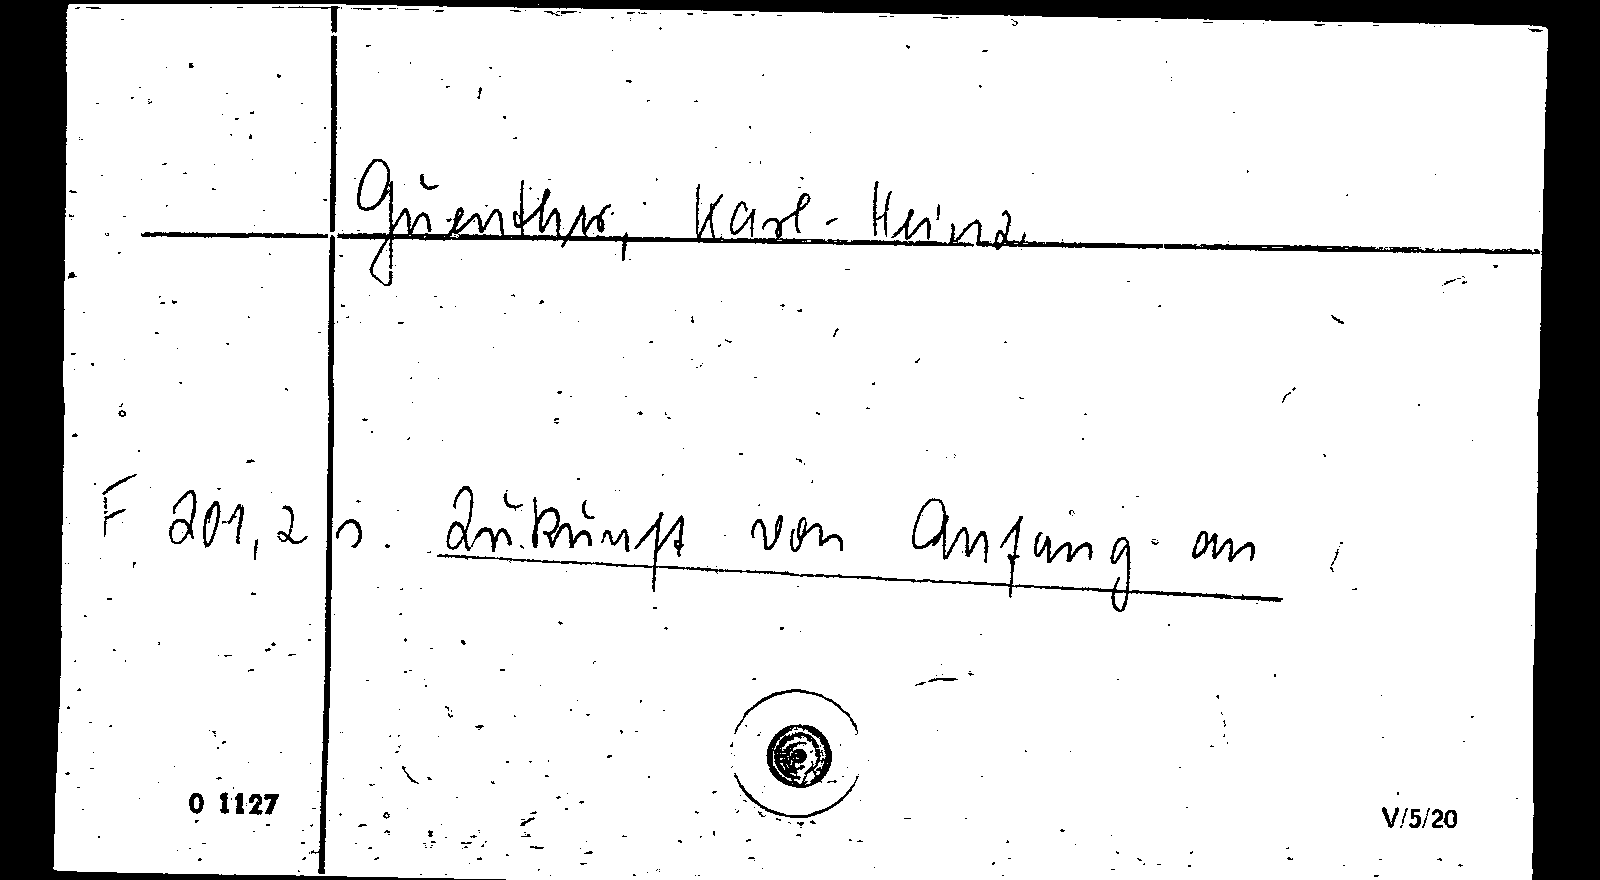 Guenther, Karl-Heinz
F 201,2 s. Zukunft von Anfang an
O 1127
V/5/20